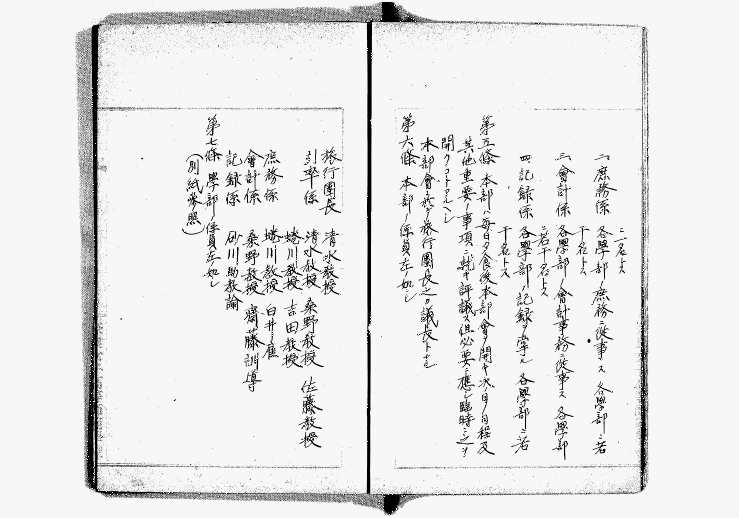 二、庶務係 各學部ノ庶務ニ從事ス 各學部ニ若
干名トス
三、會計係 各學部ノ會計事務ニ從事ス 各學部
ニ若干名トス
四、記録係 各學部ノ記録ヲ掌ル 各學部ニ若
干名トス
第五條 本部ハ毎日夕食後本部會ヲ開キ次日ノ日程及
其他重要ノ事項ニ就キ評議ス但必要ニ應シ臨時ニ之ヲ
開クコトアルヘシ
本部會ニ於テ旅行團長之カ議長トナル
第六條 本部ノ係員左ノ如シ
旅行團長 清水教授
引率係 清水教授 桑野教授 佐藤教授
蜷川教授 吉田教授
庶務係 蜷川教授 臼井雇
會計係 桑野教授 齋藤訓導
記録係 砂川助教諭
第七條 學部ノ係員左ノ如シ
(別紙參照)